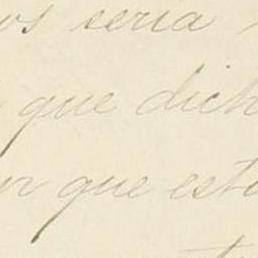 os seria
que dich
ur que esto